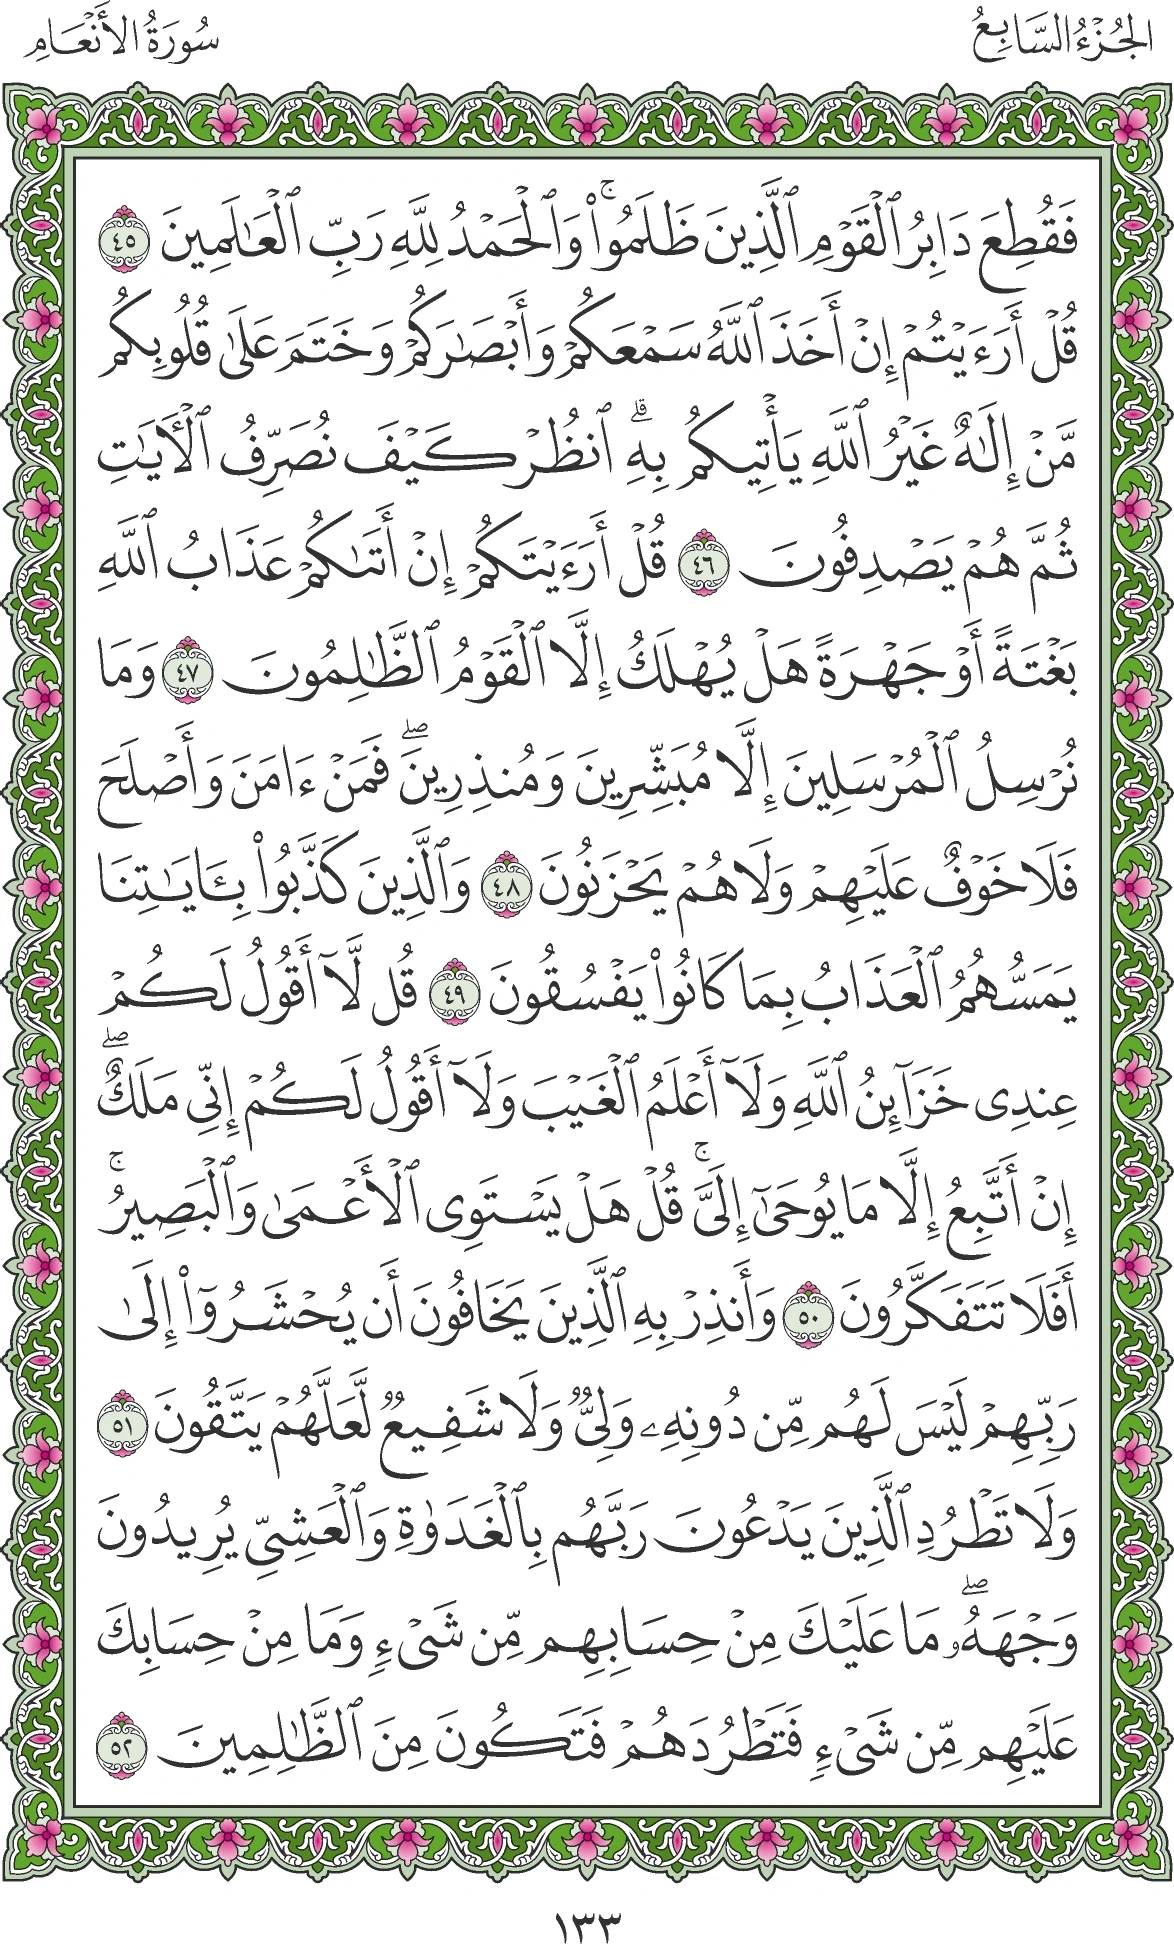 الجُزْءُ السَّابِعُ
سُورَةُ الأَنْعَامِ
فَقُطِعَ دَابِرُ ٱلۡقَوۡمِ ٱلَّذِينَ ظَلَمُواْۚ وَٱلۡحَمۡدُ لِلَّهِ رَبِّ ٱلۡعَٰلَمِينَ ٤٥
قُلۡ أَرَءَيۡتُمۡ إِنۡ أَخَذَ ٱللَّهُ سَمۡعَكُمۡ وَأَبۡصَٰرَكُمۡ وَخَتَمَ عَلَىٰ قُلُوبِكُم
مَّنۡ إِلَٰهٌ غَيۡرُ ٱللَّهِ يَأۡتِيكُم بِهِۗ ٱنظُرۡ كَيۡفَ نُصَرِّفُ ٱلۡأٓيَٰتِ
ثُمَّ هُمۡ يَصۡدِفُونَ ٤٦ قُلۡ أَرَءَيۡتَكُمۡ إِنۡ أَتَىٰكُمۡ عَذَابُ ٱللَّهِ
بَغۡتَةً أَوۡ جَهۡرَةً هَلۡ يُهۡلَكُ إِلَّا ٱلۡقَوۡمُ ٱلظَّٰلِمُونَ ٤٧ وَمَا
نُرۡسِلُ ٱلۡمُرۡسَلِينَ إِلَّا مُبَشِّرِينَ وَمُنذِرِينَۖ فَمَنۡ ءَامَنَ وَأَصۡلَحَ
فَلَا خَوۡفٌ عَلَيۡهِمۡ وَلَا هُمۡ يَحۡزَنُونَ ٤٨ وَٱلَّذِينَ كَذَّبُواْ بِـَٔايَٰتِنَا
يَمَسُّهُمُ ٱلۡعَذَابُ بِمَا كَانُواْ يَفۡسُقُونَ ٤٩ قُل لَّآ أَقُولُ لَكُمۡ
عِندِي خَزَآئِنُ ٱللَّهِ وَلَآ أَعۡلَمُ ٱلۡغَيۡبَ وَلَآ أَقُولُ لَكُمۡ إِنِّي مَلَكٌۖ
إِنۡ أَتَّبِعُ إِلَّا مَا يُوحَىٰٓ إِلَيَّۚ قُلۡ هَلۡ يَسۡتَوِي ٱلۡأَعۡمَىٰ وَٱلۡبَصِيرُۚ
أَفَلَا تَتَفَكَّرُونَ ٥٠ وَأَنذِرۡ بِهِ ٱلَّذِينَ يَخَافُونَ أَن يُحۡشَرُوٓاْ إِلَىٰ
رَبِّهِمۡ لَيۡسَ لَهُم مِّن دُونِهِۦ وَلِيٌّ وَلَا شَفِيعٌ لَّعَلَّهُمۡ يَتَّقُونَ ٥١
وَلَا تَطۡرُدِ ٱلَّذِينَ يَدۡعُونَ رَبَّهُم بِٱلۡغَدَوٰةِ وَٱلۡعَشِيِّ يُرِيدُونَ
وَجۡهَهُۥۖ مَا عَلَيۡكَ مِنۡ حِسَابِهِم مِّن شَيۡءٍ وَمَا مِنۡ حِسَابِكَ
عَلَيۡهِم مِّن شَيۡءٍ فَتَطۡرُدَهُمۡ فَتَكُونَ مِنَ ٱلظَّٰلِمِينَ ٥٢
١٣٣